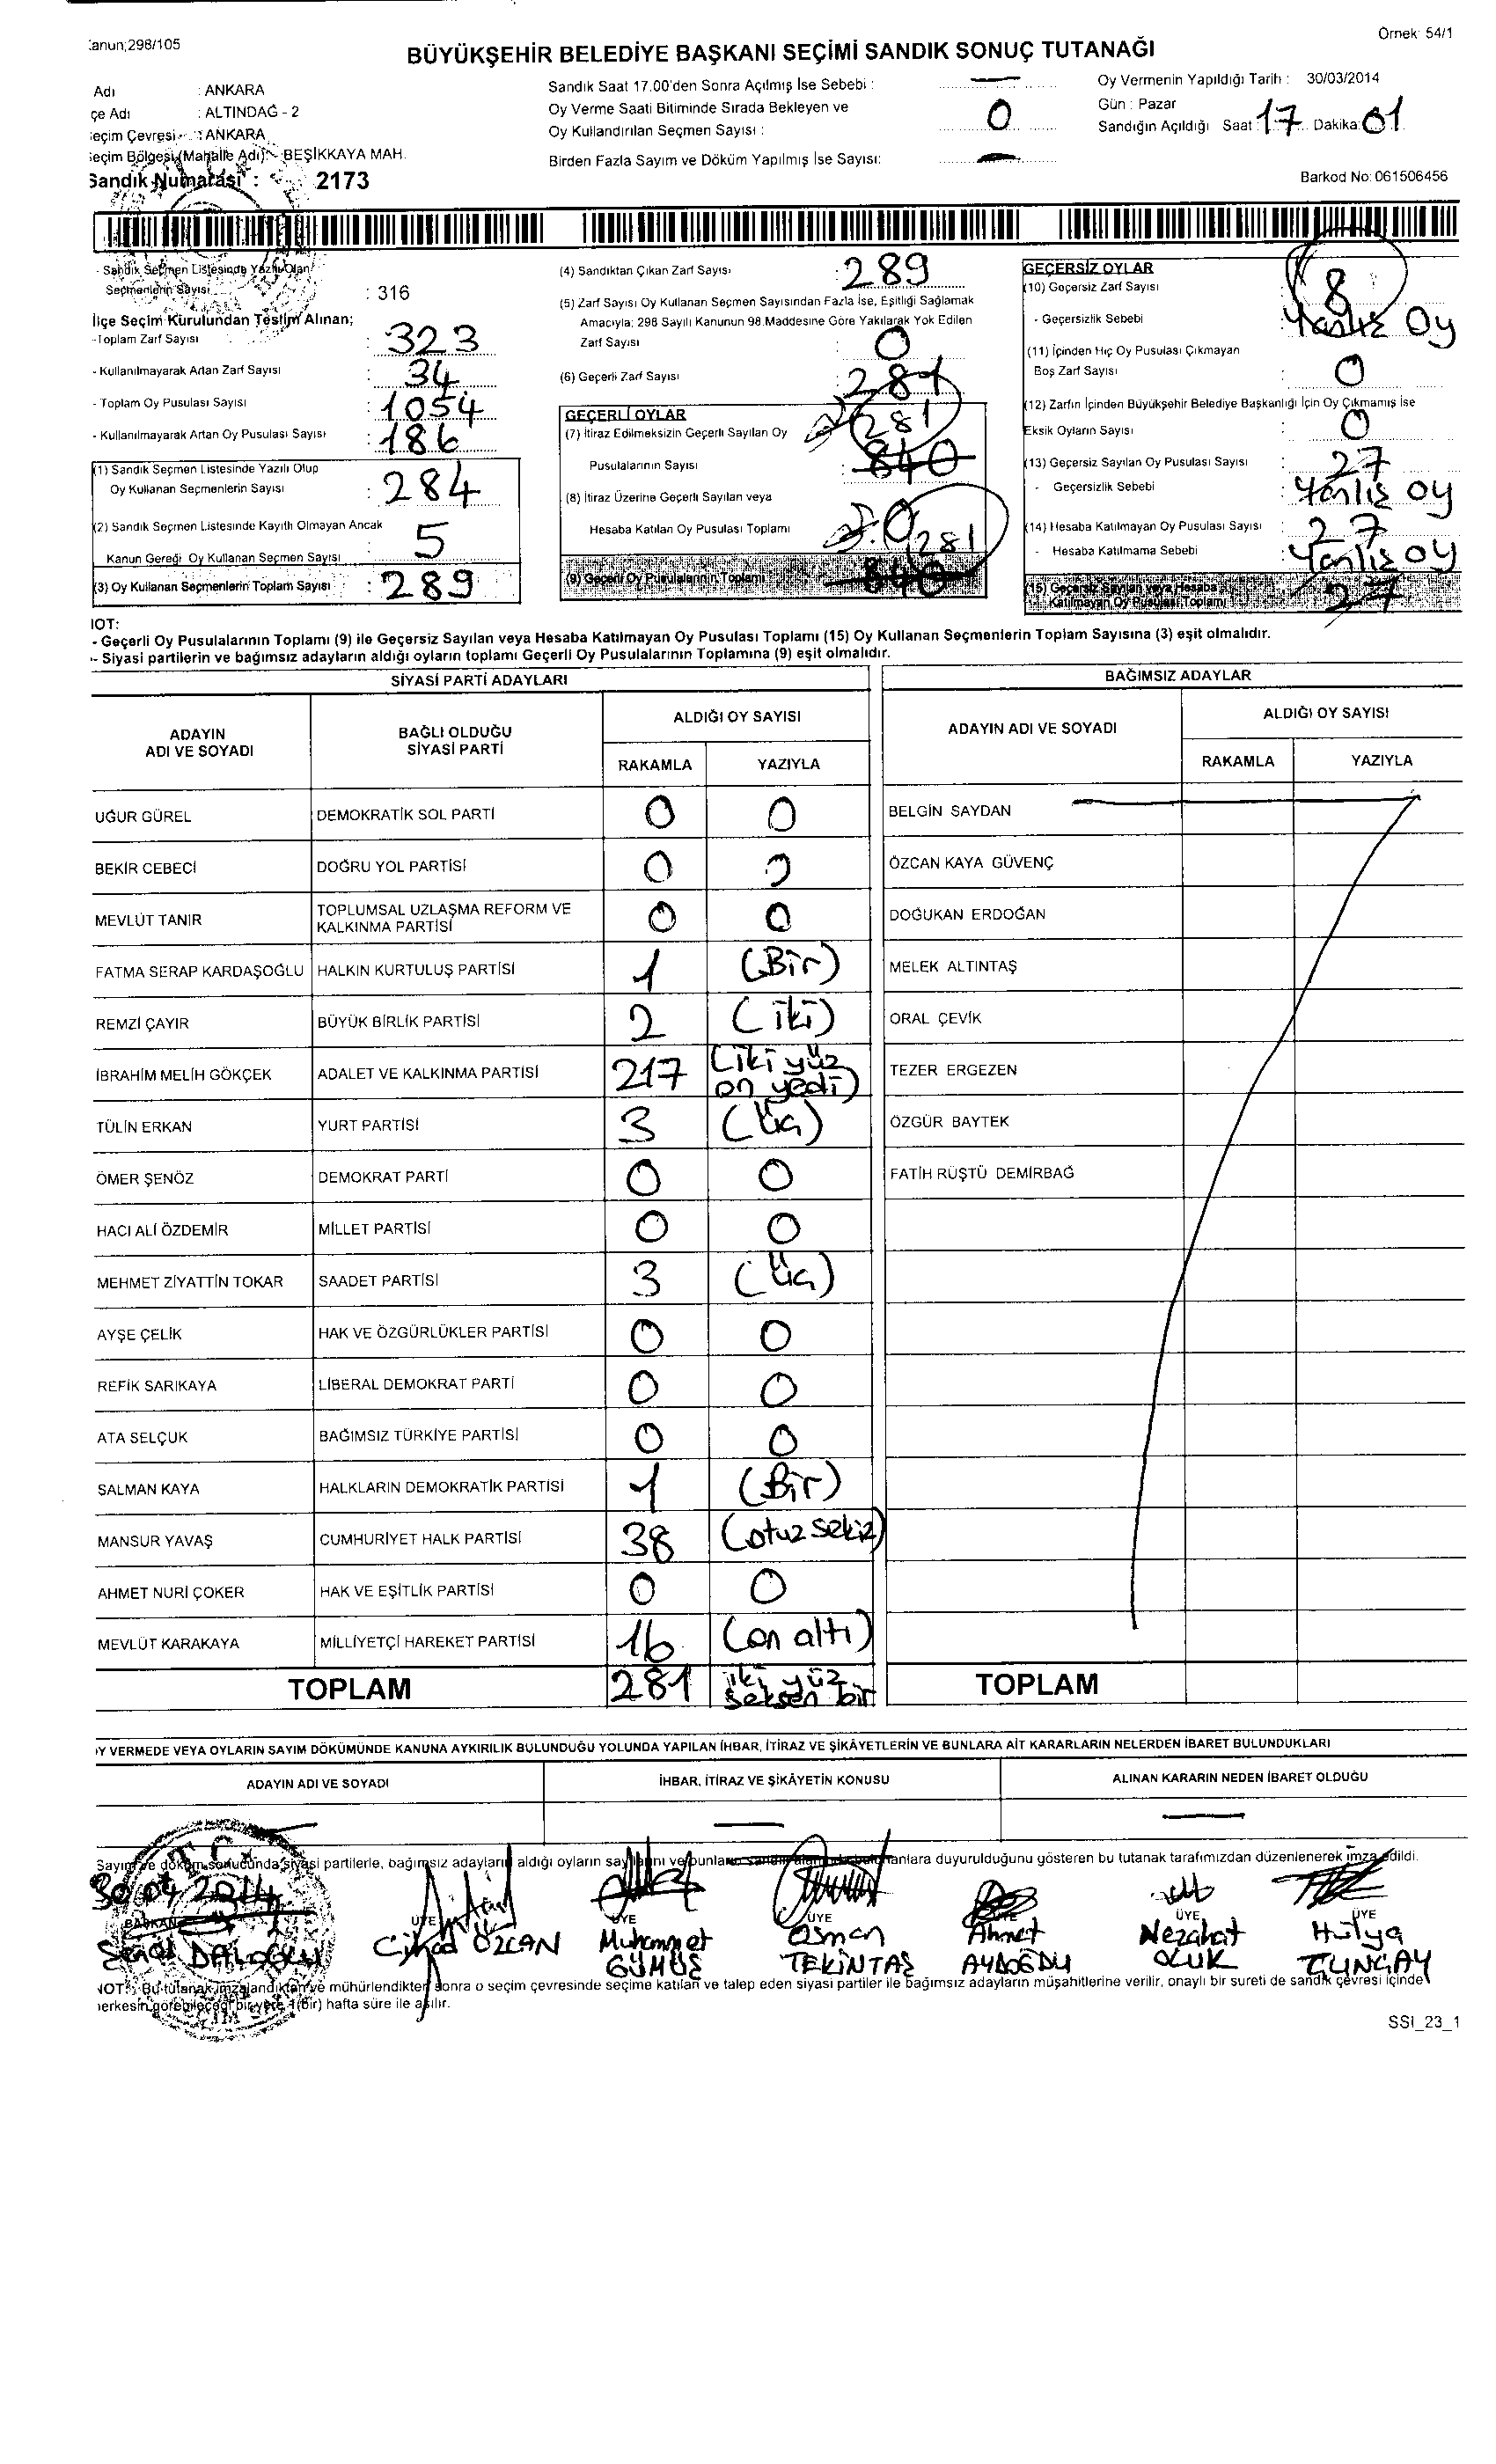 Kanun;298/105
Örnek: 54/1
BÜYÜKŞEHİR BELEDİYE BAŞKANI SEÇİMİ SANDIK SONUÇ TUTANAĞI
Adı : ANKARA
çe Adı : ALTINDAĞ - 2
eçim Çevresi : ANKARA
eçim Bölgesi (Mahalle Adı) BEŞİKKAYA MAH.
Sandık Numarası : 2173
Sandık Saat 17.00'den Sonra Açılmış İse Sebebi :
Oy Verme Saati Bitiminde Sırada Bekleyen ve
Oy Kullandırılan Seçmen Sayısı : 0
Birden Fazla Sayım ve Döküm Yapılmış İse Sayısı:
Oy Vermenin Yapıldığı Tarih : 30/03/2014
Gün : Pazar
Sandığın Açıldığı Saat : 17 Dakika: 01
Barkod No: 061506456
- Sandık Seçmen Listesinde Yazılı Olan
Seçmenlerin Sayısı : 316
İlçe Seçim Kurulundan Teslim Alınan;
-Toplam Zarf Sayısı : 323
- Kullanılmayarak Artan Zarf Sayısı : 34
- Toplam Oy Pusulası Sayısı : 1054
- Kullanılmayarak Artan Oy Pusulası Sayısı : 186
(1) Sandık Seçmen Listesinde Yazılı Olup
Oy Kullanan Seçmenlerin Sayısı : 284
(2) Sandık Seçmen Listesinde Kayıtlı Olmayan Ancak
Kanun Gereği Oy Kullanan Seçmen Sayısı : 5
(3) Oy Kullanan Seçmenlerin Toplam Sayısı : 289
(4) Sandıktan Çıkan Zarf Sayısı : 289
(5) Zarf Sayısı Oy Kullanan Seçmen Sayısından Fazla İse, Eşitliği Sağlamak
Amacıyla; 298 Sayılı Kanunun 98.Maddesine Göre Yakılarak Yok Edilen
Zarf Sayısı : 0
(6) Geçerli Zarf Sayısı : 281
GEÇERLİ OYLAR
(7) İtiraz Edilmeksizin Geçerli Sayılan Oy 281
Pusulalarının Sayısı : 840
(8) İtiraz Üzerine Geçerli Sayılan veya
Hesaba Katılan Oy Pusulası Toplamı 0 281
(9) Geçerli Oy Pusulalarının Toplamı 840
GEÇERSİZ OYLAR
(10) Geçersiz Zarf Sayısı 8
- Geçersizlik Sebebi : Yanlız Oy
(11) İçinden Hiç Oy Pusulası Çıkmayan
Boş Zarf Sayısı : 0
(12) Zarfın İçinden Büyükşehir Belediye Başkanlığı İçin Oy Çıkmamış İse
Eksik Oyların Sayısı : 0
(13) Geçersiz Sayılan Oy Pusulası Sayısı : 27
- Geçersizlik Sebebi : Yanlış oy
(14) Hesaba Katılmayan Oy Pusulası Sayısı : 27
- Hesaba Katılmama Sebebi : Yanlış oy
(15) Geçersiz Sayılan veya Hesaba
Katılmayan Oy Pusulası Toplamı 27
NOT:
- Geçerli Oy Pusulalarının Toplamı (9) ile Geçersiz Sayılan veya Hesaba Katılmayan Oy Pusulası Toplamı (15) Oy Kullanan Seçmenlerin Toplam Sayısına (3) eşit olmalıdır.
- Siyasi partilerin ve bağımsız adayların aldığı oyların toplamı Geçerli Oy Pusulalarının Toplamına (9) eşit olmalıdır.
SİYASİ PARTİ ADAYLARI
BAĞIMSIZ ADAYLAR
ADAYIN ADI VE SOYADI
BAĞLI OLDUĞU SİYASİ PARTİ
ALDIĞI OY SAYISI
RAKAMLA YAZIYLA
ADAYIN ADI VE SOYADI
ALDIĞI OY SAYISI
RAKAMLA YAZIYLA
UĞUR GÜREL DEMOKRATİK SOL PARTİ 0 0 BELGİN SAYDAN
BEKİR CEBECİ DOĞRU YOL PARTİSİ 0 0 ÖZCAN KAYA GÜVENÇ
MEVLÜT TANIR TOPLUMSAL UZLAŞMA REFORM VE KALKINMA PARTİSİ 0 0 DOĞUKAN ERDOĞAN
FATMA SERAP KARDAŞOĞLU HALKIN KURTULUŞ PARTİSİ 1 (Bir) MELEK ALTINTAŞ
REMZİ ÇAYIR BÜYÜK BİRLİK PARTİSİ 2 (iki) ORAL ÇEVİK
İBRAHİM MELİH GÖKÇEK ADALET VE KALKINMA PARTİSİ 217 (iki yüz on yedi) TEZER ERGEZEN
TÜLİN ERKAN YURT PARTİSİ 3 (Üç) ÖZGÜR BAYTEK
ÖMER ŞENÖZ DEMOKRAT PARTİ 0 0 FATİH RÜŞTÜ DEMİRBAĞ
HACI ALİ ÖZDEMİR MİLLET PARTİSİ 0 0
MEHMET ZİYATTİN TOKAR SAADET PARTİSİ 3 (Üç)
AYŞE ÇELİK HAK VE ÖZGÜRLÜKLER PARTİSİ 0 0
REFİK SARIKAYA LİBERAL DEMOKRAT PARTİ 0 0
ATA SELÇUK BAĞIMSIZ TÜRKİYE PARTİSİ 0 0
SALMAN KAYA HALKLARIN DEMOKRATİK PARTİSİ 1 (Bir)
MANSUR YAVAŞ CUMHURİYET HALK PARTİSİ 38 (otuz sekiz)
AHMET NURİ ÇOKER HAK VE EŞİTLİK PARTİSİ 0 0
MEVLÜT KARAKAYA MİLLİYETÇİ HAREKET PARTİSİ 16 (on altı)
TOPLAM 281 iki yüz seksen bir TOPLAM
Y VERMEDE VEYA OYLARIN SAYIM DÖKÜMÜNDE KANUNA AYKIRILIK BULUNDUĞU YOLUNDA YAPILAN İHBAR, İTİRAZ VE ŞİKÂYETLERİN VE BUNLARA AİT KARARLARIN NELERDEN İBARET BULUNDUKLARI
ADAYIN ADI VE SOYADI İHBAR, İTİRAZ VE ŞİKÂYETİN KONUSU ALINAN KARARIN NEDEN İBARET OLDUĞU
Sayım ve döküm sonucunda siyasi partilerle, bağımsız adayların aldığı oyların sayılarını ve bunların sandık alanında bulunanlara duyurulduğunu gösteren bu tutanak tarafımızdan düzenlenerek imza edildi.
30.04.2014
BAŞKAN ÜYE ÜYE ÜYE ÜYE ÜYE
Şenol DALOĞLU Cihad ÖZCAN Muhammet GÜMÜŞ Osman TEKİNTAŞ Ahmet AYDOĞDU Nezahat OLUK Hülya TUNCAY
NOT: Bu tutanak imzalandıktan ve mühürlendikten sonra o seçim çevresinde seçime katılan ve talep eden siyasi partiler ile bağımsız adayların müşahitlerine verilir, onaylı bir sureti de sandık çevresi içinde
herkesin görebileceği bir yere 1(bir) hafta süre ile asılır.
SSI_23_1